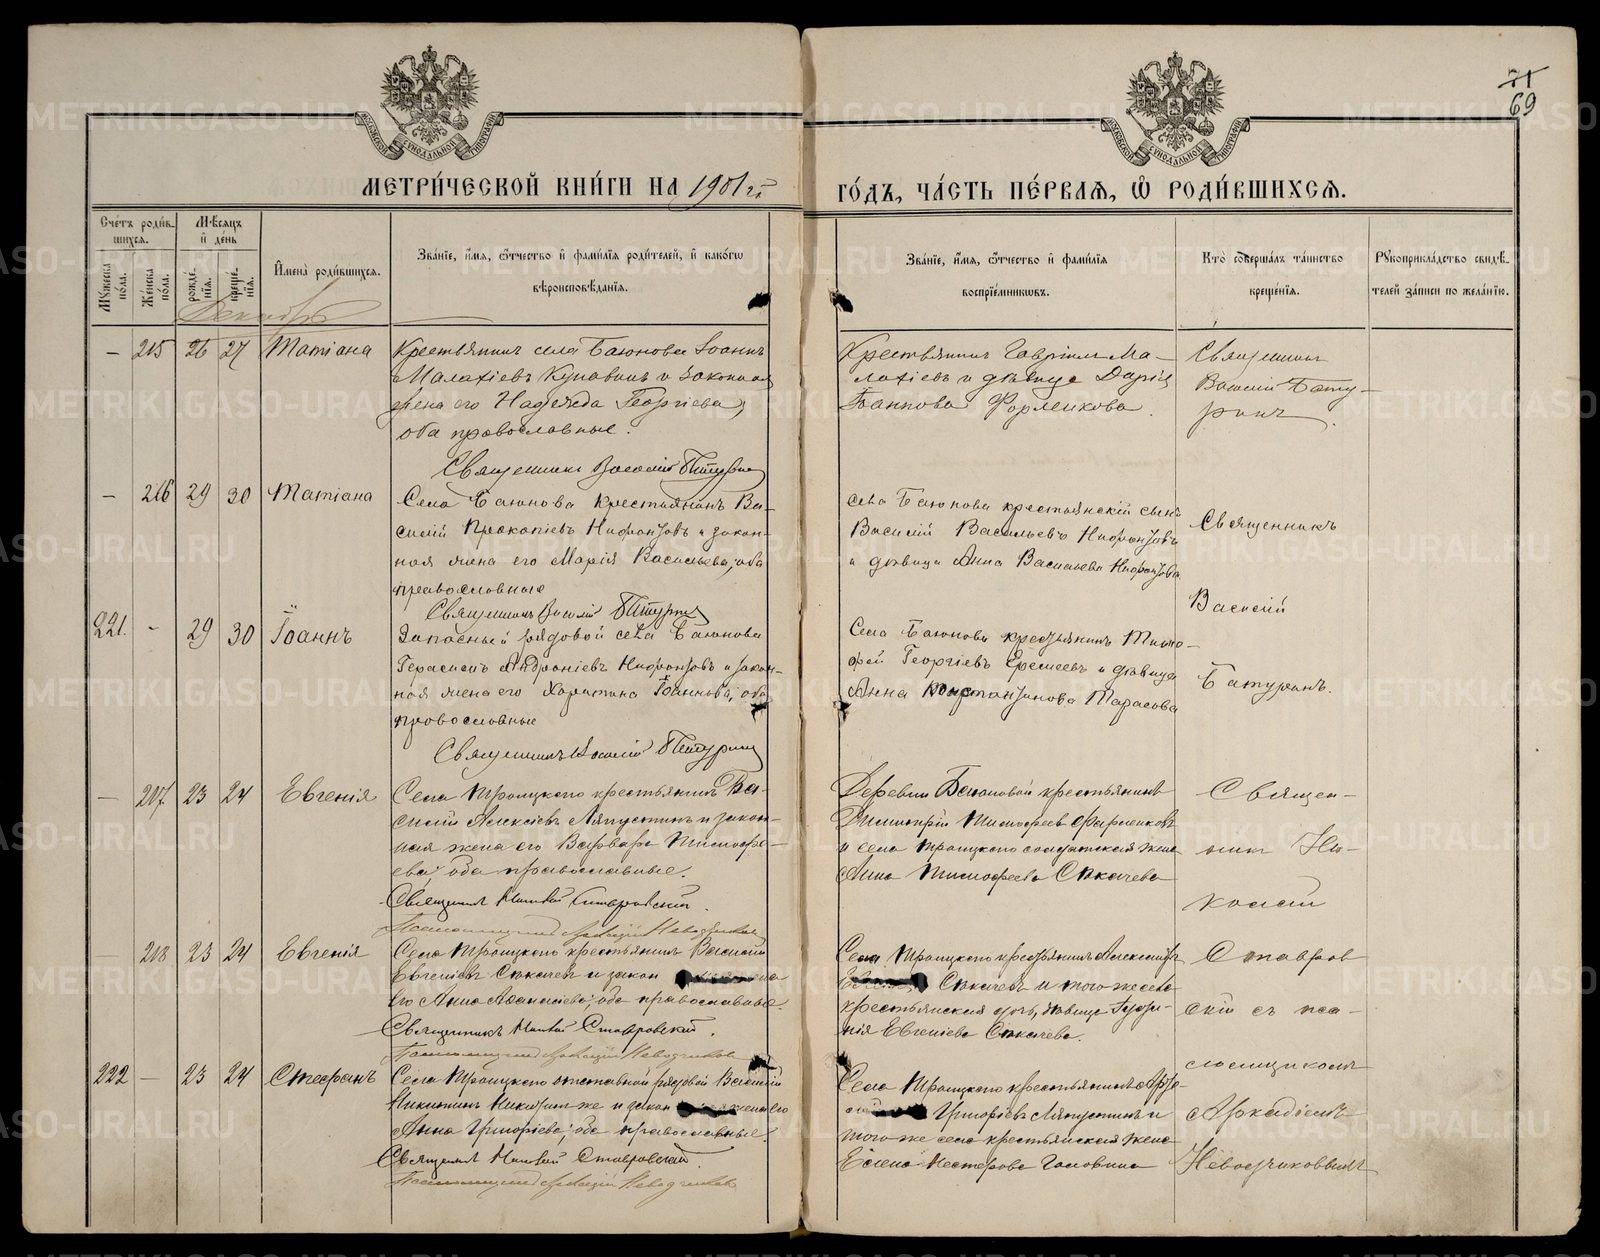 71
69
МЕТРИ́ЧЕСКОЙ КНИ́ГИ НА 1901 г.
ГО́ДЪ, ЧА́СТЬ ПЕ́РВАЯ, Ѡ РОДИ́ВШИХСЯ.
Сче́тъ роди́вшихся.
Му́жеска по́ла.
Же́нска по́ла.
Мѣ́сяцъ и де́нь
рожде́нія.
креще́нія.
Имена̀ роди́вшихся.
Зва́ніе, и́мя, ѻ́тчество и фами́лія роди́телей, и како́гѡ
вѣроисповѣ́данія.
Зва́ніе, и́мя, ѻ́тчество и фами́лія
воспріе́мникѡвъ.
Кто̀ соверша́лъ та́инство
креще́нія.
Рꙋкоприкла́дство свидѣ́-
телей за́писи по жела́нію.
Декабрь
— 215 26 27 Татіана
Крестьянинъ села Баюнова Іоаннъ
Малахіевъ Кунавинъ и законная
жена его Надежда Георгіева,
оба православные.
Священникъ Василій Батуринъ
Крестьянинъ Гавріилъ Ма-
лахіевъ и дѣвица Дарія
Іоаннова Форменкова.
Священникъ
Василій Бату-
ринъ.
— 216 29 30 Татіана
Села Баюнова крестьянинъ Ва-
силій Прокопіевъ Нифонтовъ и закон-
ная жена его Марія Васильева, оба
православные
Священникъ Василій Батуринъ
села Баюнова крестьянскій сынъ
Василій Васильевъ Нифонтовъ
и дѣвица Анна Васильева Нифонтова
Священникъ
Василій
Батуринъ.
221. - 29 30 Іоаннъ
Запасный рядовой села Баюнова
Герасимъ Андроніевъ Нифонтовъ и закон-
ная жена его Харитина Іоаннова, оба
православные
Священникъ Василій Батуринъ
Села Баюнова крестьянинъ Тимо-
фей Георгіевъ Еремеевъ и дѣвица
Анна Константинова Тарасова
— 217 23 24 Евгенія
Села Троицкаго крестьянинъ Ва-
силій Алексіевъ Ляпустинъ и закон-
ная жена его Варвара Тимофе-
ева, оба православные.
Священникъ Николай Ставровскій.
Псаломщикъ Аркадій Неводчиковъ
Деревни Баюновой крестьянинъ
Димитрій Тимофеевъ Фарленковъ
и села Троицкаго солдатская жена
Анна Тимофеева Сѣкачева
Священ-
никъ Ни-
колай
Ставров-
скій съ пса-
ломщикомъ
Аркадіемъ
Неводчиковымъ
— 218 23 24 Евгенія
Села Троицкаго крестьянинъ Василій
Евгеніевъ Сѣкачевъ и закон жена
его Анна Аѳанасіева, оба православные.
Священникъ Николай Ставровскій.
Псаломщикъ Аркадій Неводчиковъ
Села Троицкаго крестьянинъ Алексій
Сѣкачевъ и того же села
крестьянская дочь, дѣвица
Евгеніева Сѣкачева.
222 — 23 24 Стефанъ
Села Троицкаго отставной рядовой Василій
Никитинъ и закон жена его
Анна Григоріева, оба православные.
Священникъ Николай Ставровскій.
Псаломщикъ Аркадій Неводчиковъ
Села Троицкаго крестьянинъ
Григоріевъ Ляпустинъ и
того же села крестьянская жена
Елена Нестерова Головина